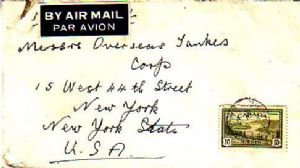 BY AIR MAIL
PAR AVION
Messrs Overseas Tankers
Corp
15 West 44th Street
New York
New York State
U.S.A.
10 10